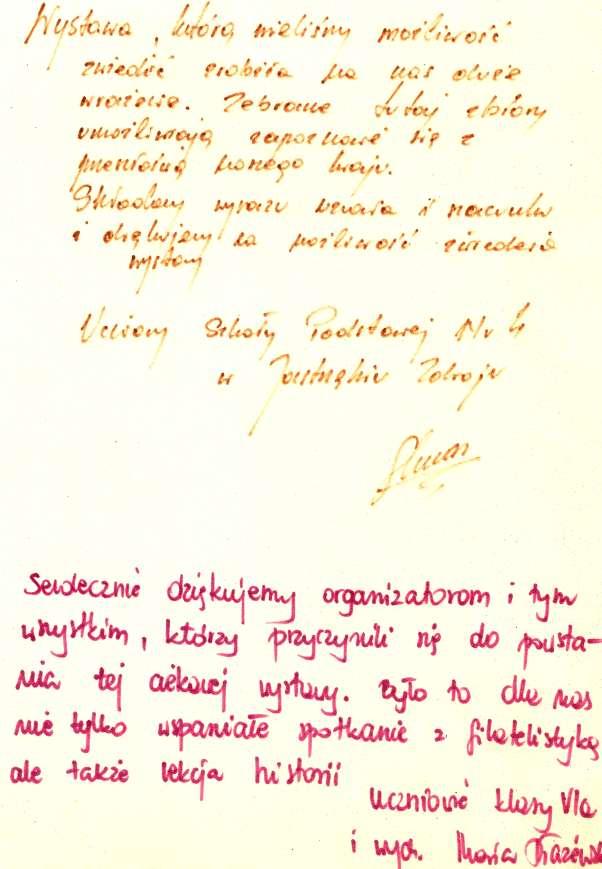 Wystawa, którą mieliśmy możliwość
zwiedzić zrobiła na nas duże
wrażenie. Zebrane tutaj zbiory
umożliwiają zapoznanie się z
przeszłością naszego kraju.
Składamy wyrazy uznania i szacunku
i dziękujemy za możliwość zwiedzenia
wystawy
Uczniowie Szkoły Podstawowej Nr 4
w Jastrzębiu Zdroju
Serdecznie dziękujemy organizatorom i tym
wszystkim, którzy przyczynili się do powsta-
nia tej ciekawej wystawy. Było to dla nas
nie tylko wspaniałe spotkanie z filatelistyką
ale także lekcja historii
Uczniowie klasy VIa
i wych. Maria